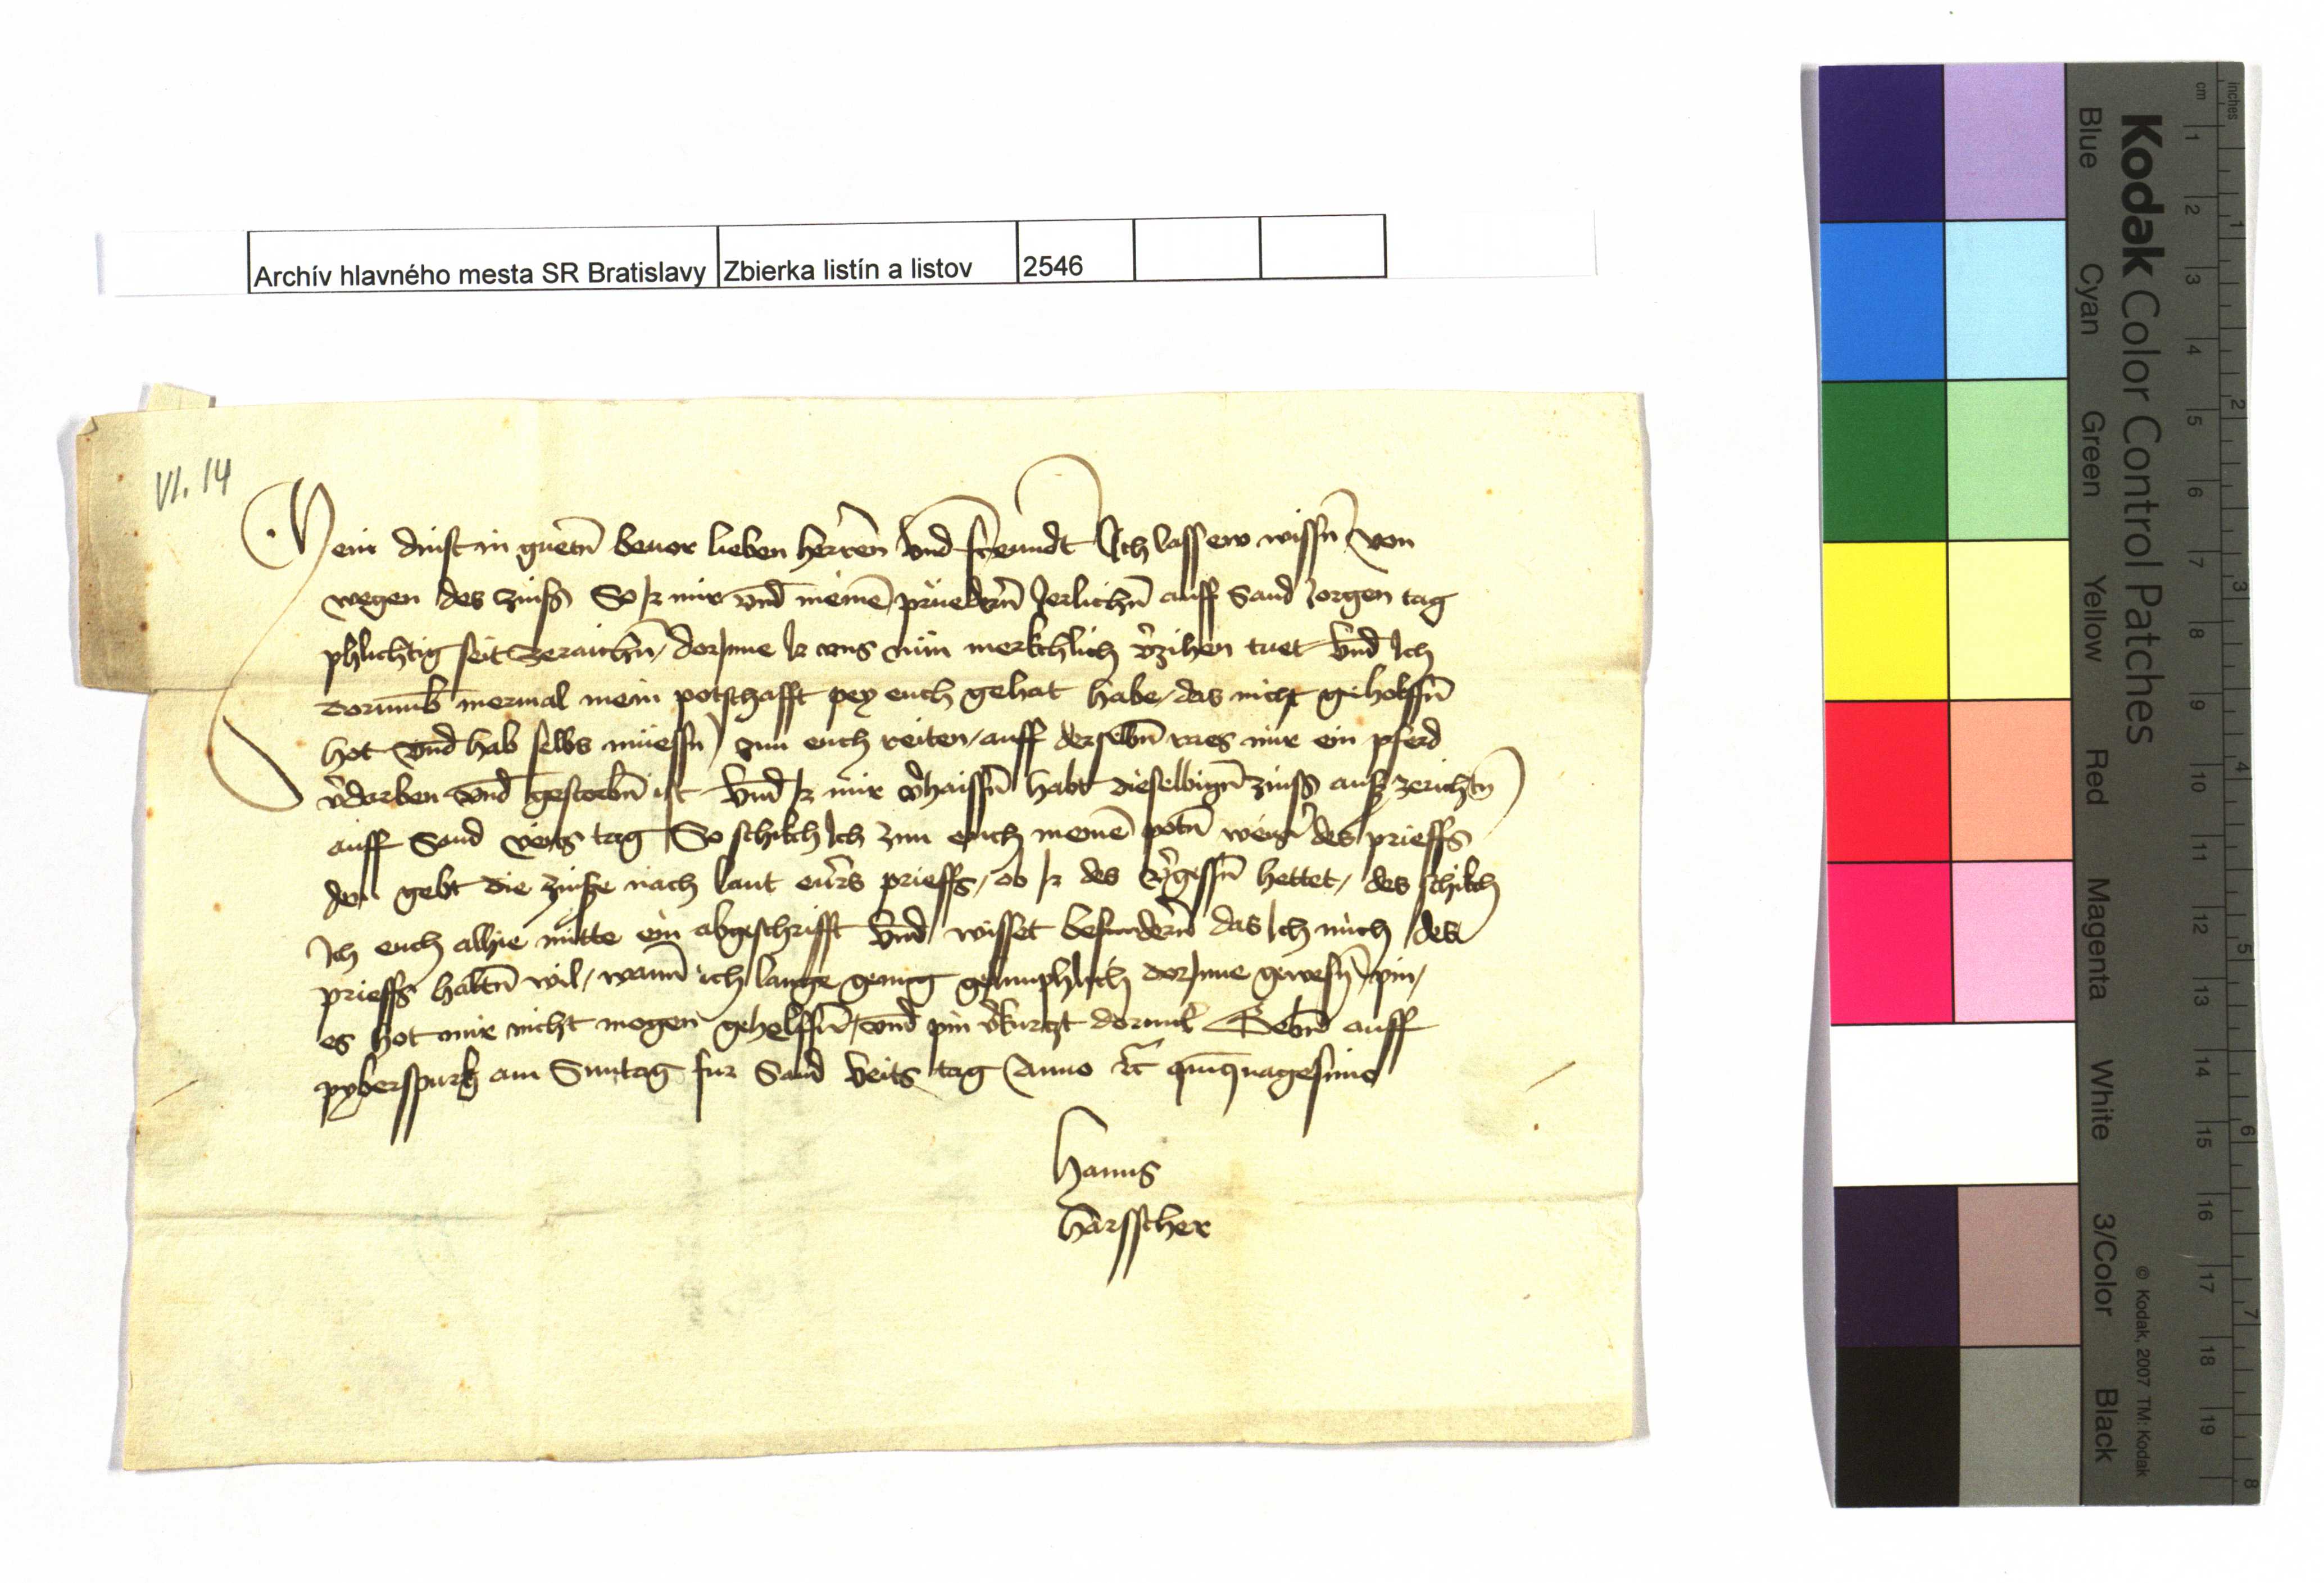 Archív hlavného mesta SR Bratislavy Zbierka listín a listov 2546
VI. 14
Mein dinst in guetn̄ beuor lieben herren vnd freundt Ich lass ew wissn̄ von
wegen des zinss So Ir mir vnd meinē prüedern̄ Jerlichn̄ auff Sand Jorgen tag
phlichtig seit zeraichn̄ / dorInne Ir vns nün merkchlich v̄zihen tuet vnd Ich
dorumb mermal mein potschafft pey euch gehat habe / das nicht geholffn̄
hot vnd hab selbs müessn̄ zun euch reiten / auff derselbn̄ rais mir ein pferd
v̄dorben vnd gestorbn̄ ist vnd Ir mir v̄haissn̄ habt dieselbign̄ zinss ausszerichtn̄
auff Sand veits tag So schikch Ich zun euch meinē potn̄ des prieffs
dem gebt die zinsse nach laut eurs prieffs / ob Ir des v̄gessn̄ hettet / des schikch
Ich euch alhie mitte ein abgeschrifft vnd wisset besundern̄ das Ich mich des
prieffs haltn̄ wil / wann ich lange genug gelimphlich dorInne gewesn̄ pin /
es hot mir nicht mogen gehelffn̄ / vnd pin v̄kurtzt dorinn̄ Gebn̄ auff
pyberspurk am Suntag fur Sand veits tag Anno etc̄ quīquagesimo
Hanns
Harsscher
Kodak Color Control Patches
Blue Cyan Green Yellow Red Magenta White 3/Color Black
© Kodak, 2007 TM: Kodak
inches 1 2 3 4 5 6 7 8
cm 1 2 3 4 5 6 7 8 9 10 11 12 13 14 15 16 17 18 19